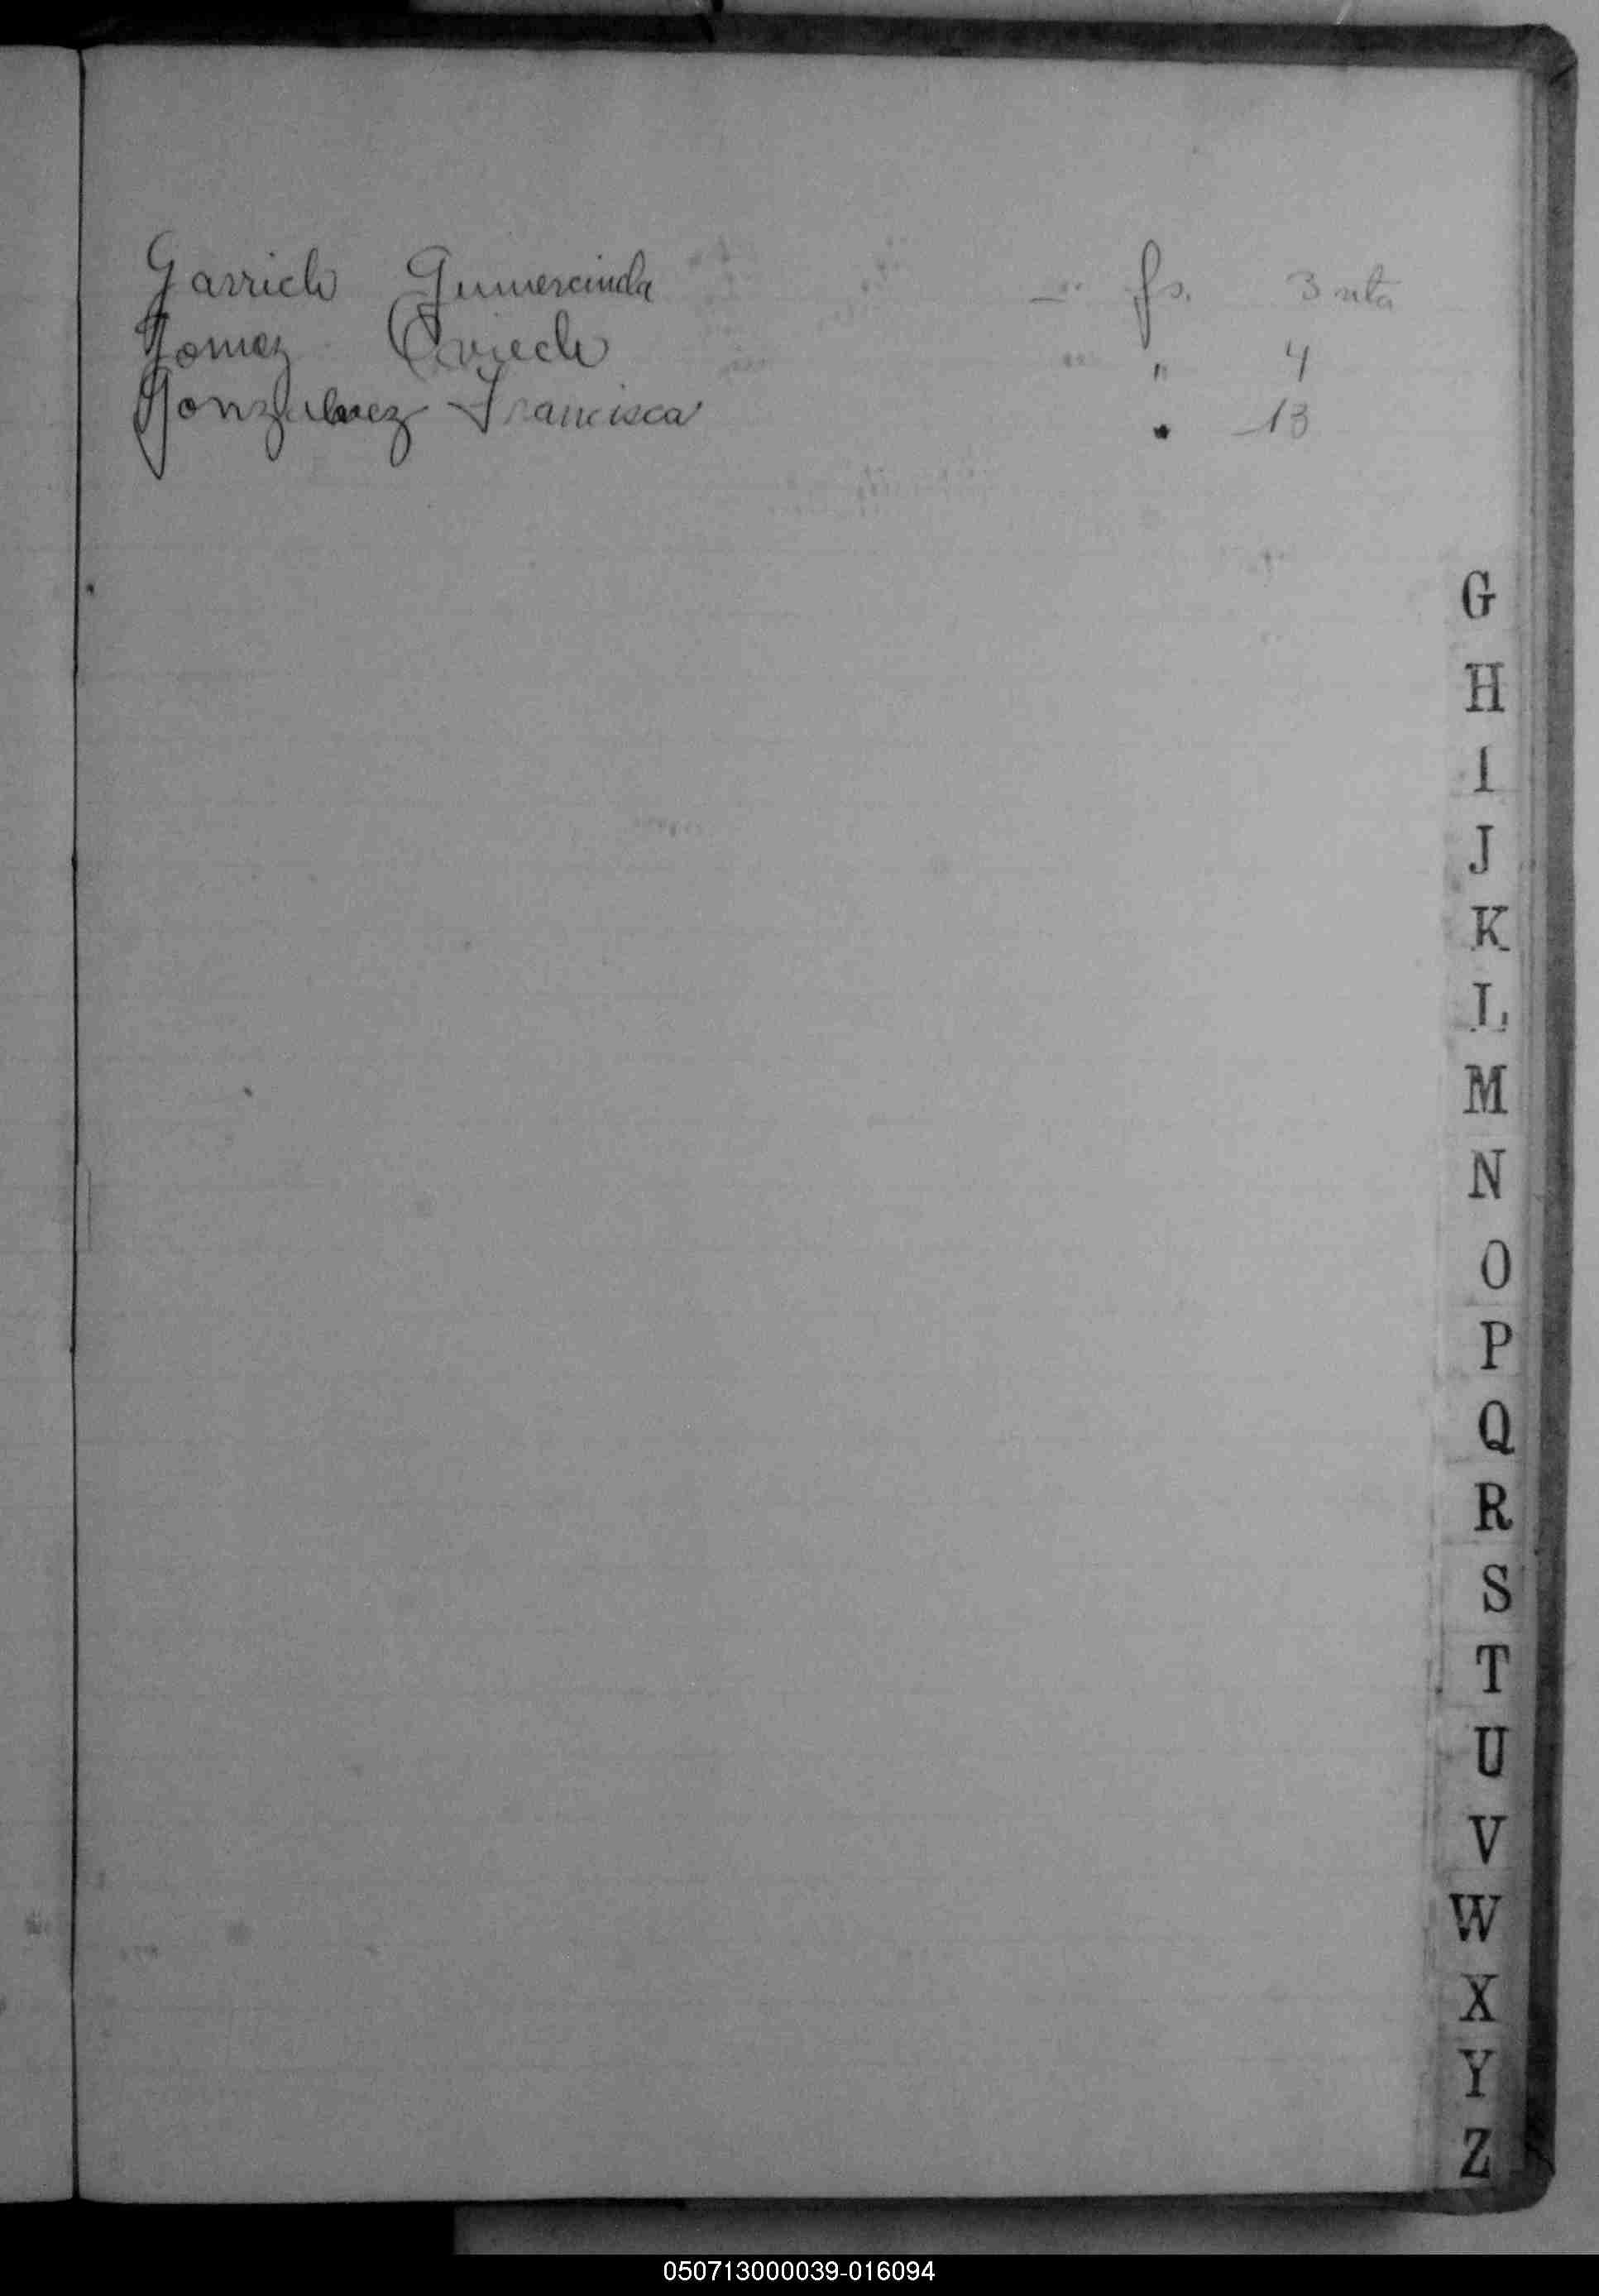 Garrido Gumercinda fs. 3 vta
Gomez Oviedo " 4
Gonzalvez Francisca " 13
G
H
I
J
K
L
M
N
O
P
Q
R
S
T
U
V
W
X
Y
Z
050713000039-016094